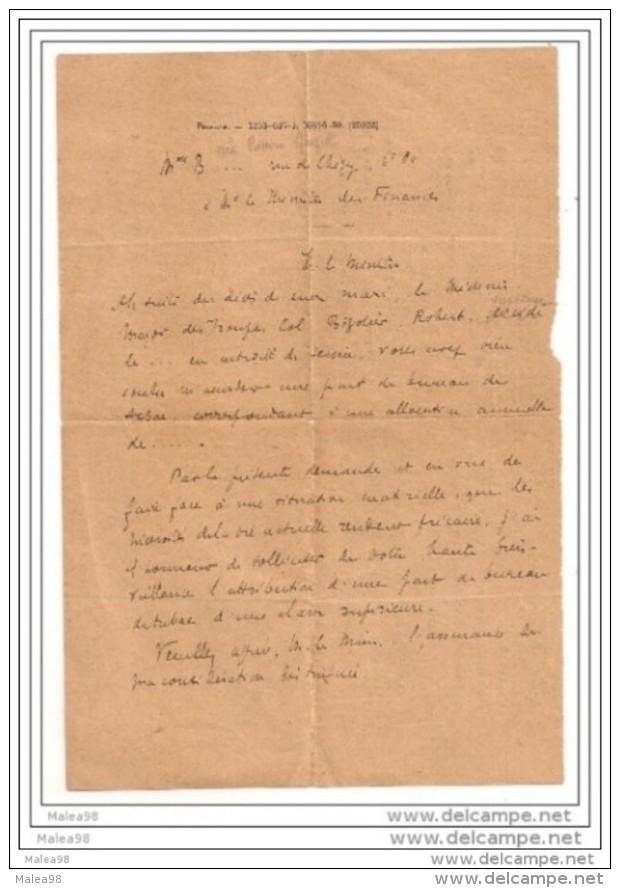 Mme B ... rue de Chézy
à Mr le Ministre des Finances
M. le Ministre
suite du décès de mon mari, le Médecin
Major des Troupes Col. Robert, décédé
le ... en activité de service, vous avez bien
voulu m'accorder une part de bureau de
tabac, correspondant à une allocation annuelle
de ......
Par la présente demande et en vue de
faire face à une situation matérielle, que les
nécessités de la vie actuelle rendent précaire, j'ai
l'honneur de solliciter de votre haute bien-
veillance l'attribution d'une part de bureau
de tabac d'une classe supérieure.
Veuillez agréer, M. le Min. l'assurance de
ma considération distinguée
Malea98 www.delcampe.net
Malea98 www.delcampe.net
Malea98 www.delcampe.net
Malea98 www.delcampe.net